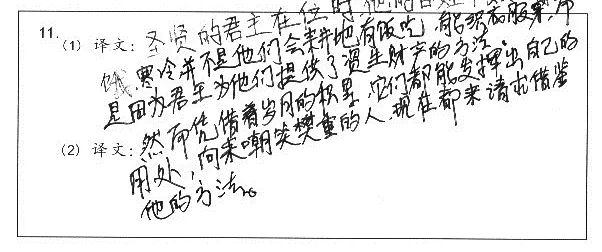 11.
(1) 译文：圣贤的君主在位时，他的百姓不
饿寒冷并不是他们会耕地有饭吃，能织衣服来
是因为君主为他们提供了资生财产的方法
(2) 译文：然而凭借着岁月的积累，它们都能发挥出自己的
用处，向来嘲笑樊重的人，现在都来请求借鉴
他的方法。